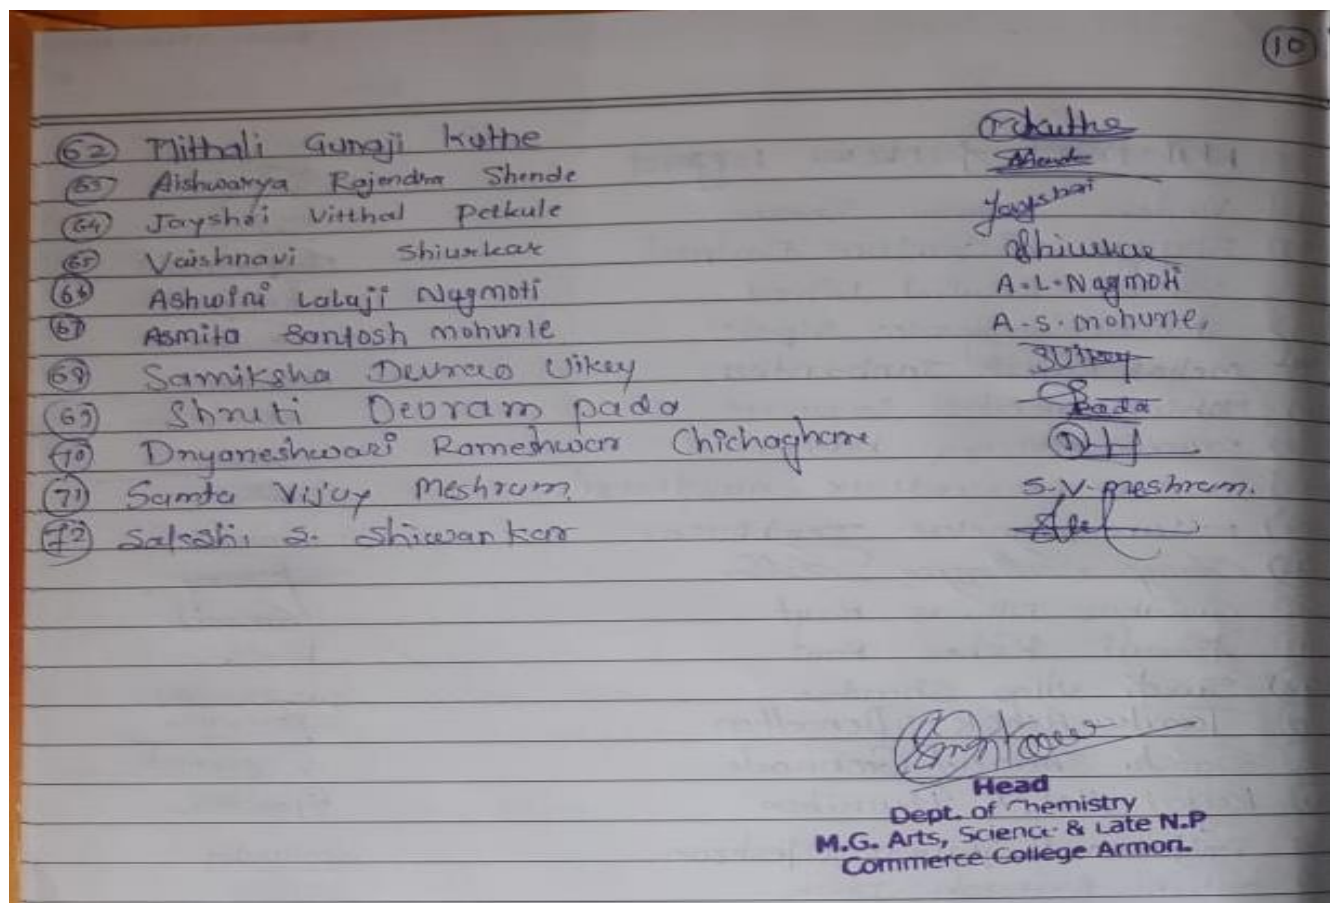 10
62 Mithali Gunaji Kuthe Mkuthe
63 Aishwarya Rajendra Shende Shende
64 Jayshri Vitthal Petkule Jayshri
65 Vaishnavi Shiurkar Shiurkar
66 Ashwini Lalaji Nagmoti A.L.Nagmoti
67 Asmita Santosh mohurle A.S.mohurle,
68 Samiksha Devrao Uikey SUikey
69 Shruti Deoram pada Pada
70 Dnyaneshwari Rameshwar Chichaghare
71 Samta Vijay Meshram S.V.meshram.
72 Sakshi S. Shiwankar
Head
Dept. of Chemistry
M.G. Arts, Science & Late N.P
Commerce College Armori.